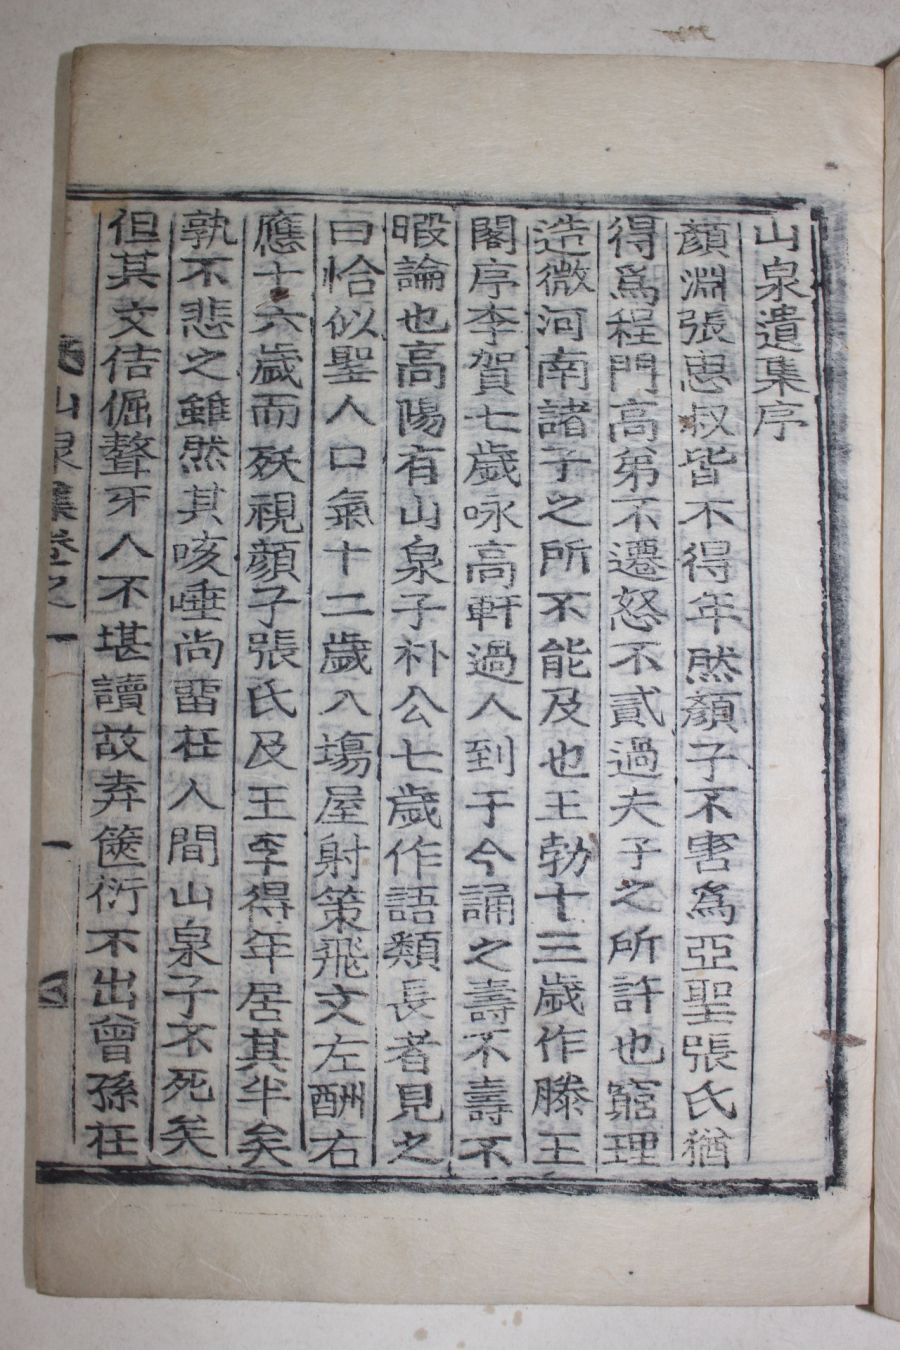 山泉遺集序
顏淵張思叔皆不得年然顏子不害爲亞聖張氏猶
得爲程門高弟不遷怒不貳過夫子之所許也窮理
造微河南諸子之所不能及也王勃十三歲作滕王
閣序李賀七歲咏高軒過人到于今誦之壽不壽不
暇論也高陽有山泉子朴公七歲作語類長者見之
曰恰似聖人口氣十二歲入塲屋射策飛文左酬右
應十六歲而殀視顔子張氏及王李得年居其半矣
孰不悲之雖然其咳唾尚畱在人間山泉子不死矣
但其文佶倔聱牙人不堪讀故弆篋衍不出曾孫在
山泉集卷之一
一